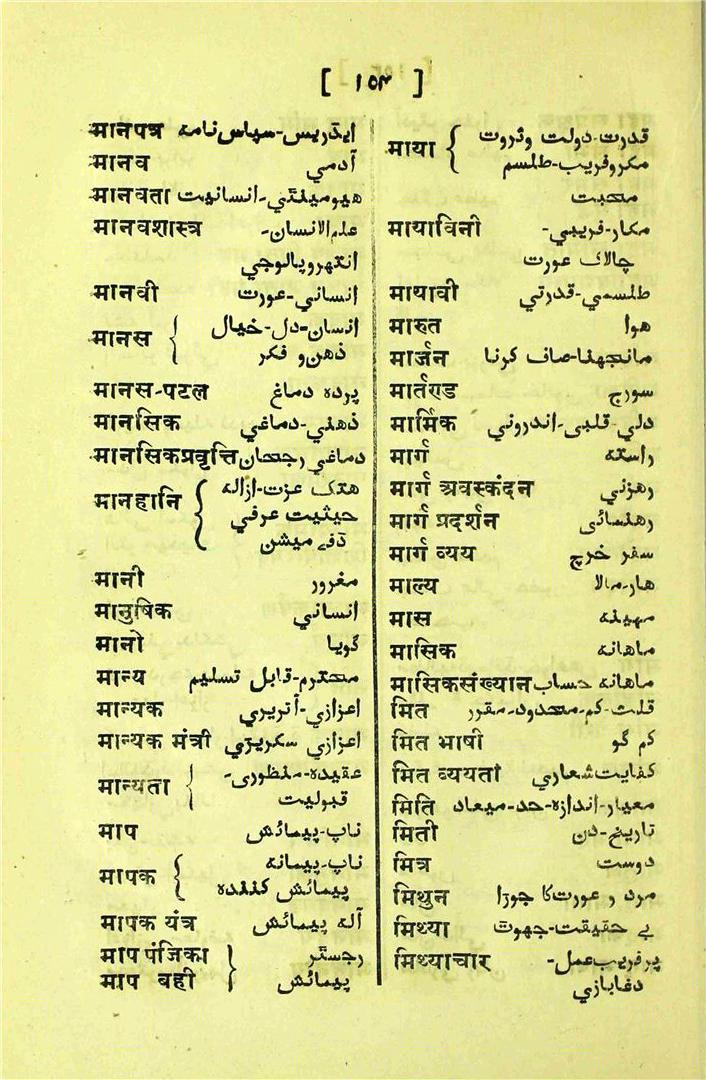 [ ۱۵۳ ]
मानपत्र ایڈریس-سپاس نامہ
मानव آدمی
मानवता ہیومینٹی-انسانیت
मानवशास्त्र علم الانسان-
انتھروپالوجی
मानवी انسانی-عورت
मानस { انسان-دل-خیال
ذہن و فکر
मानस-पटल پردہ دماغ
मानसिक ذہنی-دماغی
मानसिकप्रवृत्ति دماغی رجحان
मानहानि { ہتک عزت-ازالہ
حیثیت عرفی
ڈفے میشن
मानी مغرور
मानुषिक انسانی
मानो گویا
मान्य محترم-قابل تسلیم
मान्यक اعزازی-آنریری
मान्यक मंत्री اعزازی سکریٹری
मान्यता { عقیدہ-منظوری-
قبولیت
माप ناپ-پیمائش
मापक { ناپ-پیمانہ
پیمائش کنندہ
मापक यंत्र آلہ پیمائش
माप पंजिका } رجسٹر
माप बही پیمائش
माया { قدرت-دولت و ثروت
مکر و فریب-طلسم
محبت
मायाविनी مکار-فریبی-
چالاک عورت
मायावी طلسمی-قدرتی
मारुत ہوا
मार्जन مانجھنا-صاف کرنا
मार्तण्ड سورج
मार्मिक دلی-قلبی-اندرونی
मार्ग راستہ
मार्ग अवस्कंदन رہزنی
मार्ग प्रदर्शन رہنمائی
मार्ग व्यय سفر خرچ
माल्य ہار-مالا
मास مہینہ
मासिक ماہانہ
मासिकसंख्यान ماہانہ حساب
मित قلت-کم-محدود-مقرر
मित भाषी کم گو
मित व्ययता کفایت شعاری
मिति معیار-اندازہ-حد-میعاد
मिती تاریخ-دن
मित्र دوست
मिथुन مرد و عورت کا جوڑا
मिथ्या بے حقیقت-جھوٹ
मिथ्याचार پر فریب عمل-
دغابازی